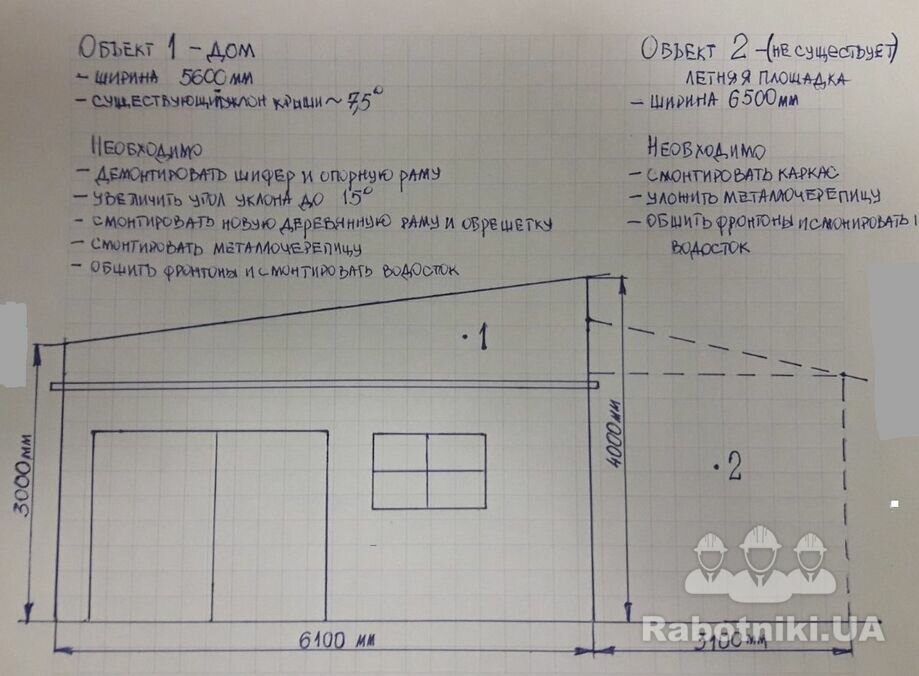 Объект 1 - дом
- ширина 5600мм
- существующий уклон крыши ~ 7,5°
Необходимо
- демонтировать шифер и опорную раму
- увеличить угол уклона до 15°
- смонтировать новую деревянную раму и обрешетку
- смонтировать металлочерепицу
- обшить фронтоны и смонтировать водосток
Объект 2 - (не существует)
летняя площадка
- ширина 6500мм
Необходимо
- смонтировать каркас
- уложить металлочерепицу
- обшить фронтоны и смонтировать
водосток
1
3000мм
4000мм
2
6100 мм
3100мм
Rabotniki.UA